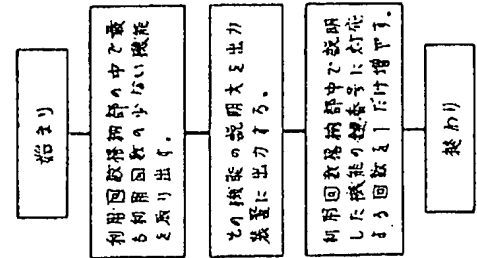 始まり
利用回数格納部の中で最
も利用回数の少ない機能
を取り出す。
その機能の説明文を出力
装置に出力する。
利用回数格納部中で説明
した機能の機番号に対応
する回数を1だけ増やす。
終わり